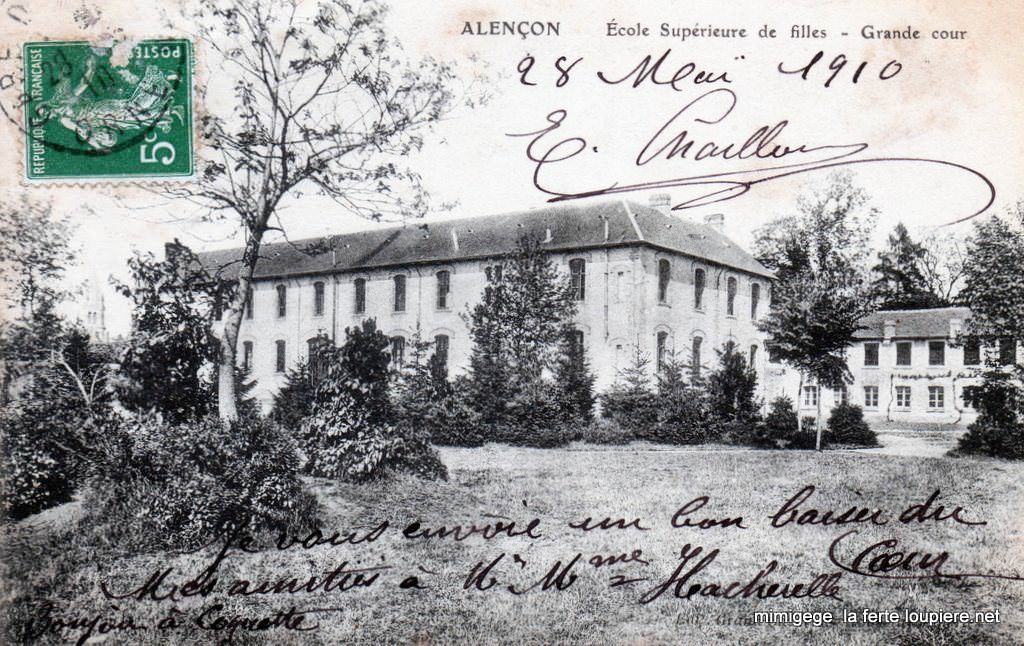 ALENÇON École Supérieure de filles - Grande cour
POSTES
RÉPUBLIQUE FRANÇAISE
5c
28 Maï 1910
E.
Je vous envoie un bon baiser du
Cœur
Mes amitiés à Mr Mme Hacherelle
Bonjour à Coquette
mimigege la ferte loupiere.net